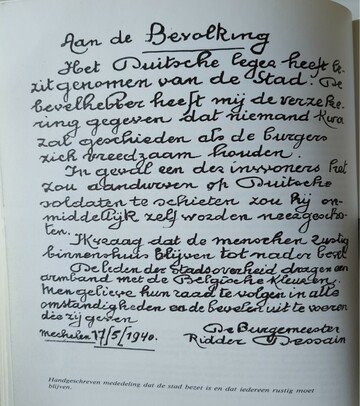 Aan de Bevolking
Het Duitsche leger heeft be-
zit genomen van de Stad. De
bevelhebber heeft mij de verzeke-
ring gegeven dat niemand kwa
zal geschieden als de burgers
zich vreedzaam houden.
In geval een der inwoners het
zou aandurven op Duitsche
soldaten te schieten zou hij on-
middellijk zelf worden neergescho-
ten.
Ik vraag dat de menschen rustig
binnenshuis blijven tot nader
De leden der stadsoverheid dragen een
armband met de Belgische kleuren.
Men gelieve hun raad te volgen in alle
omstandigheden en de bevelen uit te voeren
die zij geven
Mechelen 17/5/1940.
De Burgemeester
Ridder Dessain
Handgeschreven mededeling dat de stad bezet is en dat iedereen rustig moet
blijven.